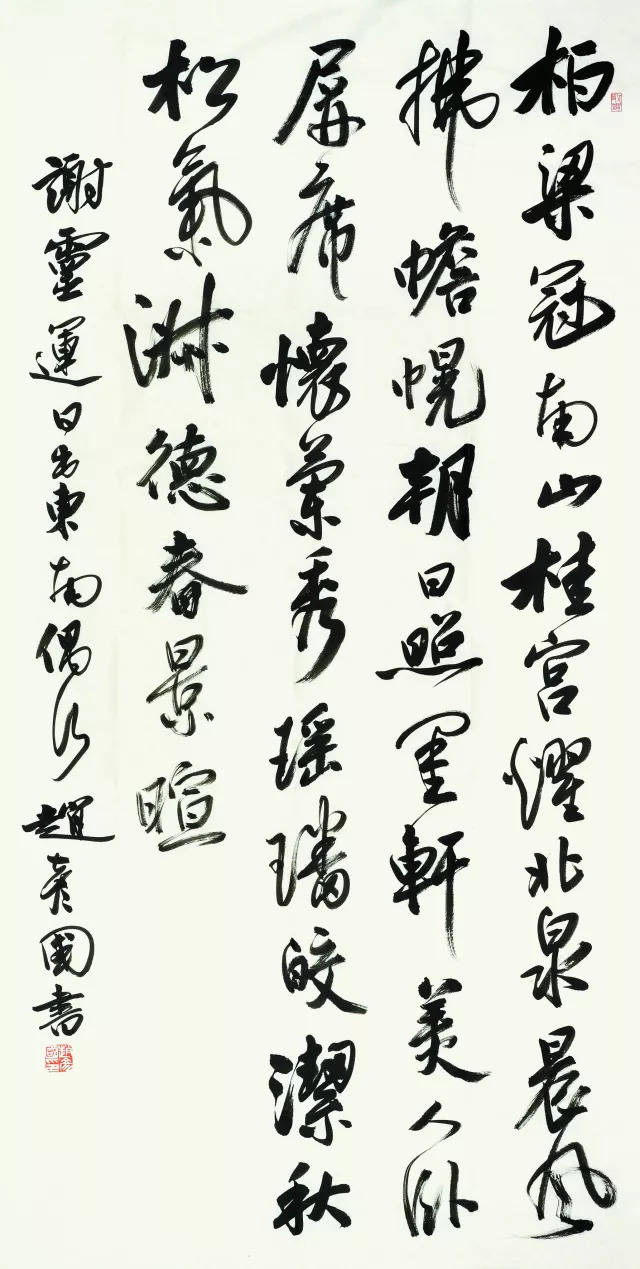 柏梁冠南山桂宮燿北泉晨風
拂幨幌朝日照閨軒美人卧
屏席懷蘭秀瑶璠皎潔秋
松氣淑德春景暄
謝靈運日出東南偶行趙彥國書